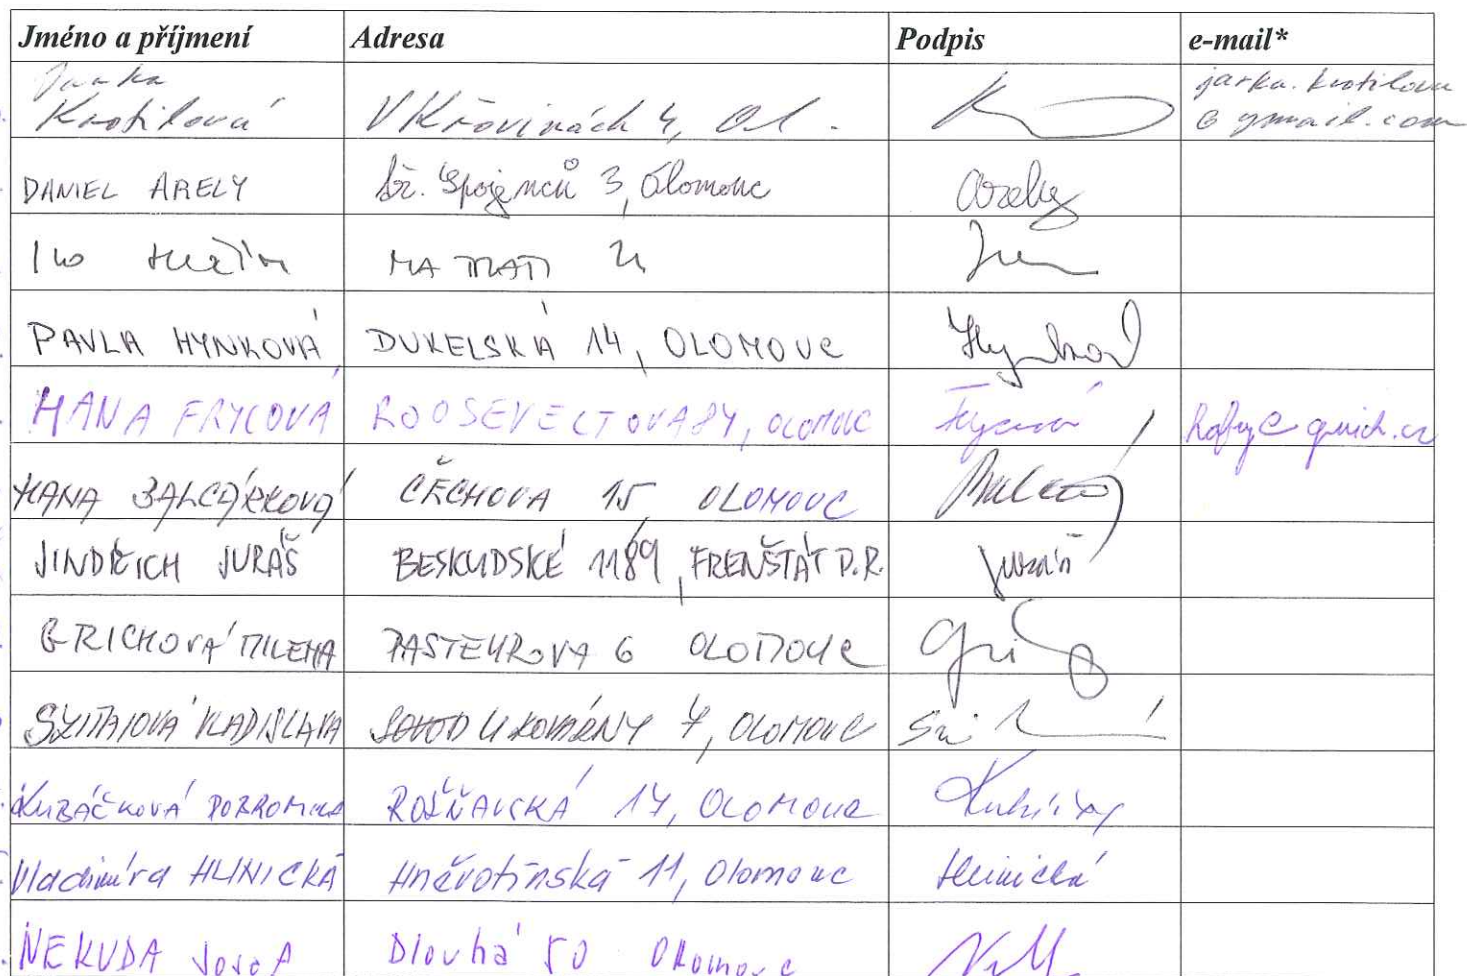 Jméno a příjmení Adresa Podpis e-mail*
Jarka jarka.krotilova
Krotilová V Křovinách 4, Ol. @gmail.com
DANIEL ARELY tř. Spojenců 3, Olomouc Arely
Ivo NA TRATI
PAVLA HYNKOVÁ DUKELSKÁ 14, OLOMOUC Hynková
HANA FRYCOVÁ ROOSEVELTOVA 84, OLOMOUC Frycová
HANA BALCÁRKOVÁ ČECHOVA 15 OLOMOUC
JINDŘICH JURÁŠ BESKYDSKÉ 1189, FRENŠTÁT P.R. Juráš
GRICHOVÁ MILENA PASTEUROVA 6 OLOMOUC
VLADISLAVA U KOVÁRNY 4, OLOMOUC
KUBÁČKOVÁ DOBROMILA ROŽŇAVSKÁ 14, OLOMOUC
Vladimíra HLINICKÁ Hněvotínská 11, Olomouc Hlinická
NEKUDA Josef Dlouhá 50 Olomouc